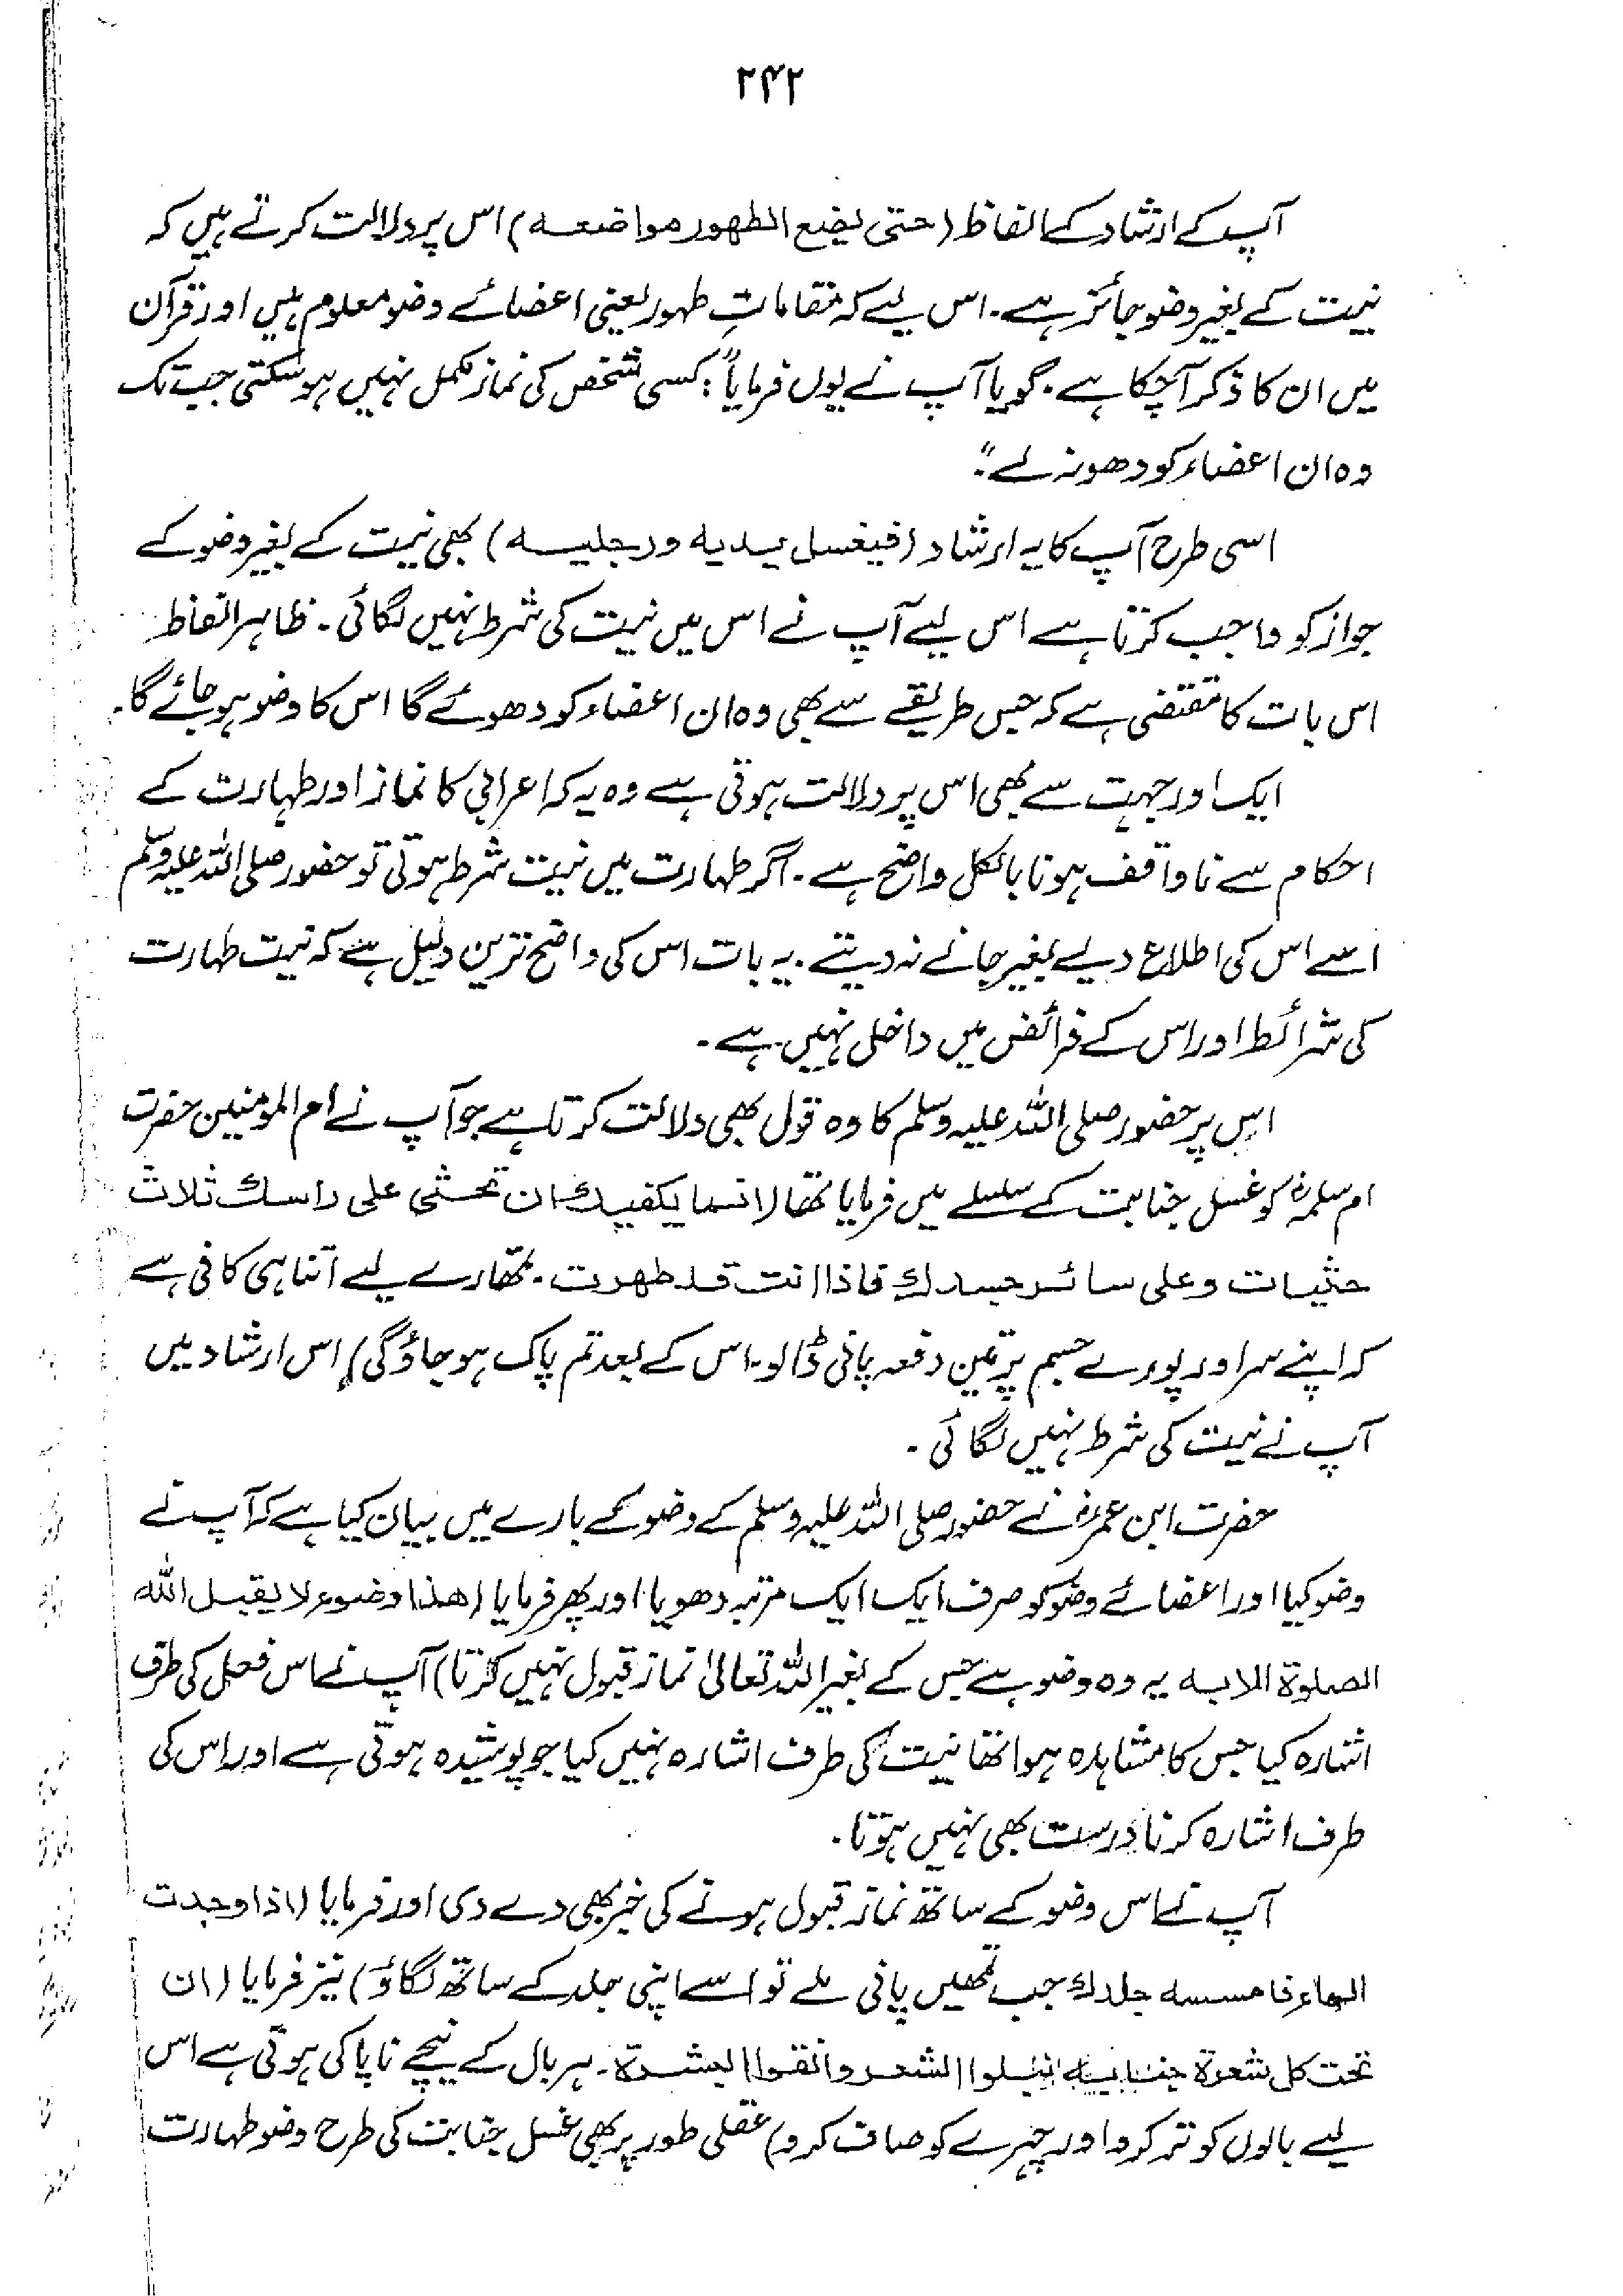 ۲۴۲
آپ کے ارشاد کے الفاظ (حتی یضع الطهور مواضعه) اس پر دلالت کرتے ہیں کہ
نیت کے بغیر وضو جائز ہے۔ اس لیے کہ مقاماتِ طہور یعنی اعضائے وضو معلوم ہیں اور قرآن
میں ان کا ذکر آچکا ہے۔ گویا آپ نے یوں فرمایا: "کسی شخص کی نماز مکمل نہیں ہوسکتی جب تک
وہ ان اعضاء کو دھو نہ لے"۔
اسی طرح آپ کا یہ ارشاد (فیغسل یدیه ورجلیه) بھی نیت کے بغیر وضو کے
جواز کو واجب کرتا ہے اس لیے آپ نے اس میں نیت کی شرط نہیں لگائی۔ ظاہر الفاظ
اس بات کا مقتضی ہے کہ جس طریقے سے بھی وہ ان اعضاء کو دھوئے گا اس کا وضو ہو جائے گا۔
ایک اور جہت سے بھی اس پر دلالت ہوتی ہے وہ یہ کہ اعرابی کا نماز اور طہارت کے
احکام سے ناواقف ہونا بالکل واضح ہے۔ اگر طہارت میں نیت شرط ہوتی تو حضور صلی اللہ علیہ وسلم
اسے اس کی اطلاع دیے بغیر جانے نہ دیتے۔ یہ بات اس کی واضح ترین دلیل ہے کہ نیت طہارت
کی شرائط اور اس کے فرائض میں داخل نہیں ہے۔
اس پر حضور صلی اللہ علیہ وسلم کا وہ قول بھی دلالت کرتا ہے جو آپ نے ام المومنین حضرت
ام سلمہؓ کو غسل جنابت کے سلسلے میں فرمایا تھا (انما یکفیك ان تحثی علی راسك ثلاث
حثیات وعلی سائر جسدك فاذا انت قد طهرت۔ تمھارے لیے اتنا ہی کافی ہے
کہ اپنے سر اور پورے جسم پر تین دفعہ پانی ڈالو۔ اس کے بعد تم پاک ہو جاؤ گی) اس ارشاد میں
آپ نے نیت کی شرط نہیں لگائی۔
حضرت ابن عمرؓ نے حضور صلی اللہ علیہ وسلم کے وضو کے بارے میں بیان کیا ہے کہ آپ نے
وضو کیا اور اعضائے وضو کو صرف ایک ایک مرتبہ دھویا اور پھر فرمایا (هذا وضوء لا یقبل الله
الصلوة الا به یہ وہ وضو ہے جس کے بغیر اللہ تعالیٰ نماز قبول نہیں کرتا) آپ نے اس فعل کی طرف
اشارہ کیا جس کا مشاہدہ ہوا تھا نیت کی طرف اشارہ نہیں کیا جو پوشیدہ ہوتی ہے اور اس کی
طرف اشارہ کرنا درست بھی نہیں ہوتا۔
آپ نے اس وضو کے ساتھ نماز قبول ہونے کی خبر بھی دے دی اور فرمایا (اذا وجدت
الماء فامسسه جلدك جب تمھیں پانی ملے تو اسے اپنی جلد کے ساتھ لگاؤ) نیز فرمایا (ان
تحت کل شعرة جنابة فبلوا الشعر وانقوا البشرة۔ ہر بال کے نیچے ناپاکی ہوتی ہے اس
لیے بالوں کو تر کرو اور چہرے کو صاف کرو) عقلی طور پر بھی غسل جنابت کی طرح وضو طہارت